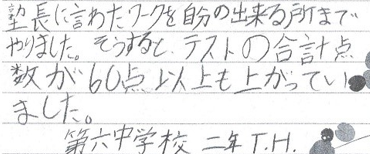 塾長に言わたワークを自分の出来る所まで
やりました。そうすると、テストの合計点
数が60点以上も上がってい
ました。
第六中学校 二年T.H.